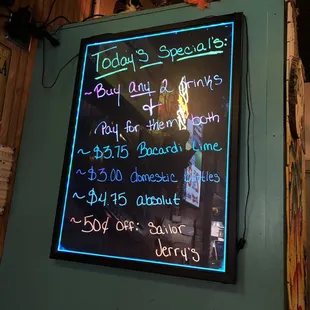 Today's Special's:
~Buy any 2 drinks
&
Pay for them both
~$3.75 Bacardi Lime
~$3.00 Domestic Bottles
~$4.75 absolut
~50¢ Off: Sailor
Jerry's